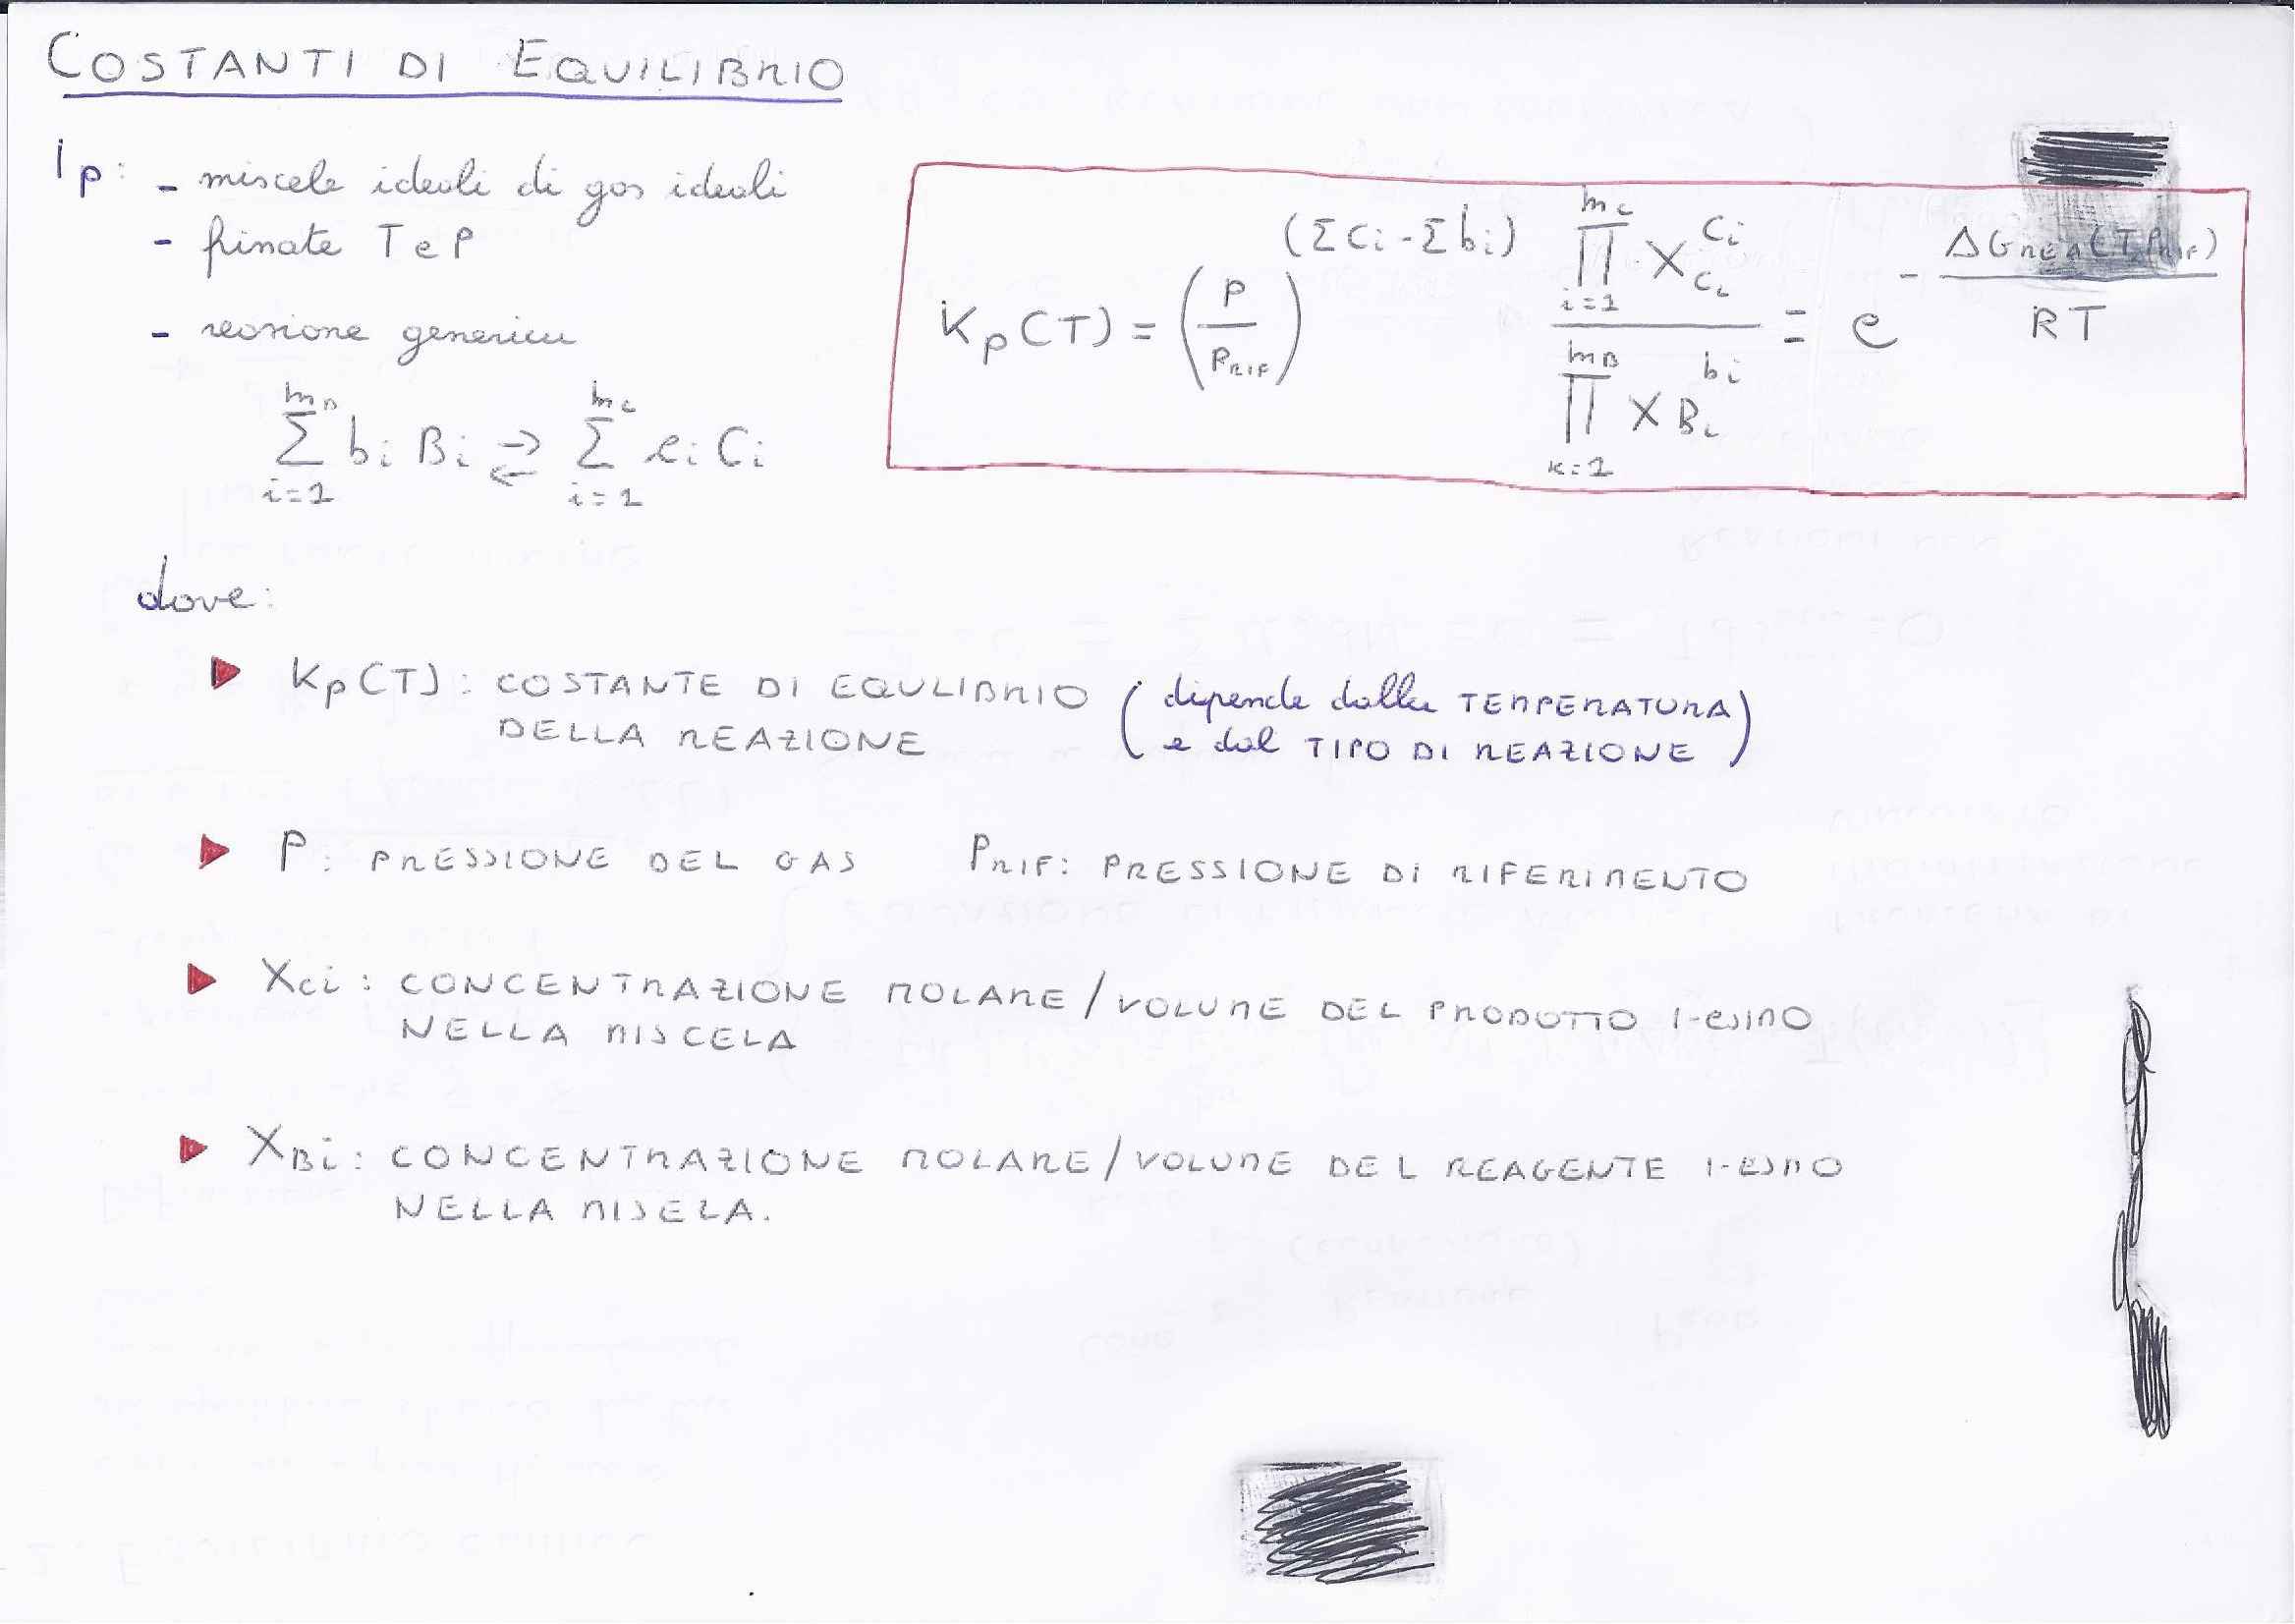 COSTANTI DI EQUILIBRIO
Ip: - miscele ideali di gas ideali
- finate T e P
- reazione generica
∑_{i=1}^{m_B} b_i B_i ⇄ ∑_{i=1}^{m_C} c_i C_i
K_P(T) = (P / P_RIF)^{(∑c_i - ∑b_i)} ∏_{i=1}^{m_C} X_{C_i}^{c_i} / ∏_{k=1}^{m_B} X_{B_i}^{b_i} = e^{- ΔG_REA(T, P_RIF) / RT}
dove:
▶ K_P(T): COSTANTE DI EQULIBRIO (dipende dalla TEMPERATURA
DELLA REAZIONE e dal TIPO DI REAZIONE)
▶ P: PRESSIONE DEL GAS P_RIF: PRESSIONE DI RIFERIMENTO
▶ X_Ci: CONCENTRAZIONE MOLARE/VOLUME DEL PRODOTTO i-esimo
NELLA MISCELA
▶ X_Bi: CONCENTRAZIONE MOLARE/VOLUME DEL REAGENTE i-esimo
NELLA MISELA.